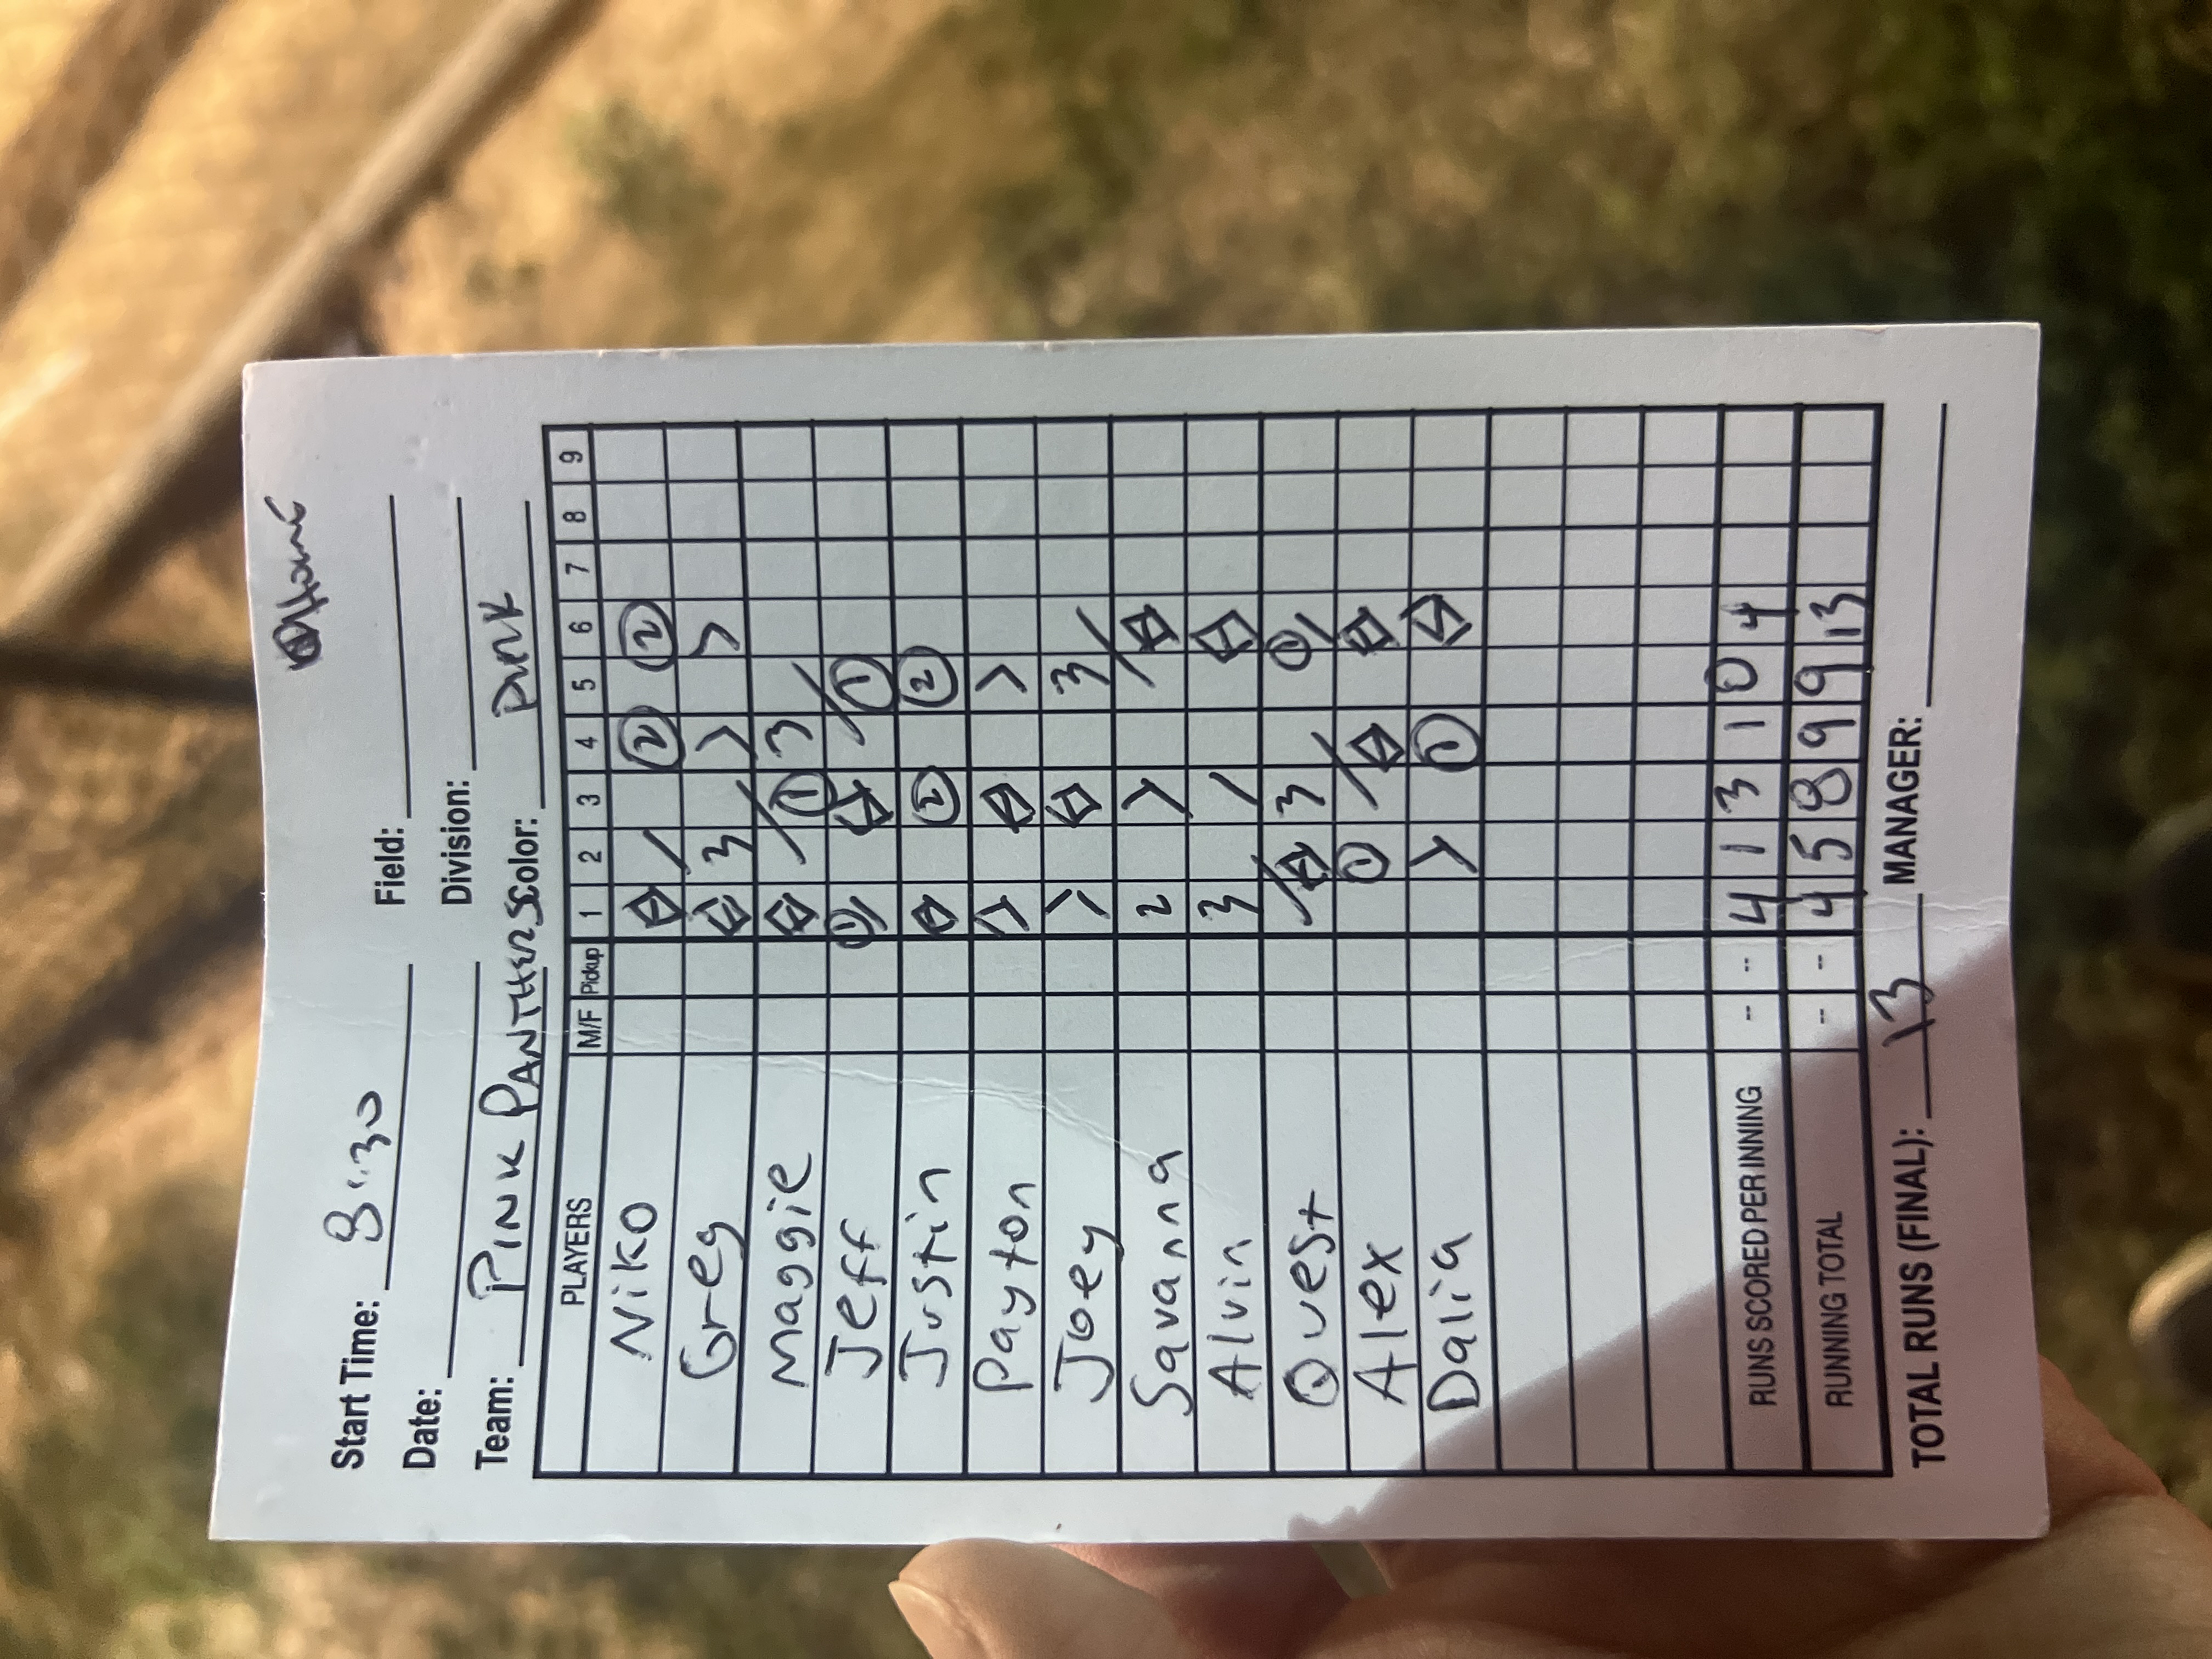 Home
Start Time: 8:30 Field:
Date: Division:
Team: PINK PANTHERS Color: PINK
PLAYERS M/F Pickup 1 2 3 4 5 6 7 8 9
Niko 2 2
Greg 3
Maggie 1 3
Jeff 1 1
Justin 2 2
Payton
Joey 3
Savanna 2
Alvin 3
Quest 3 1
Alex 1
Dalia 1
RUNS SCORED PER INNING -- -- 4 1 3 1 0 4
RUNNING TOTAL -- -- 4 5 8 9 9 13
TOTAL RUNS (FINAL): 13 MANAGER: